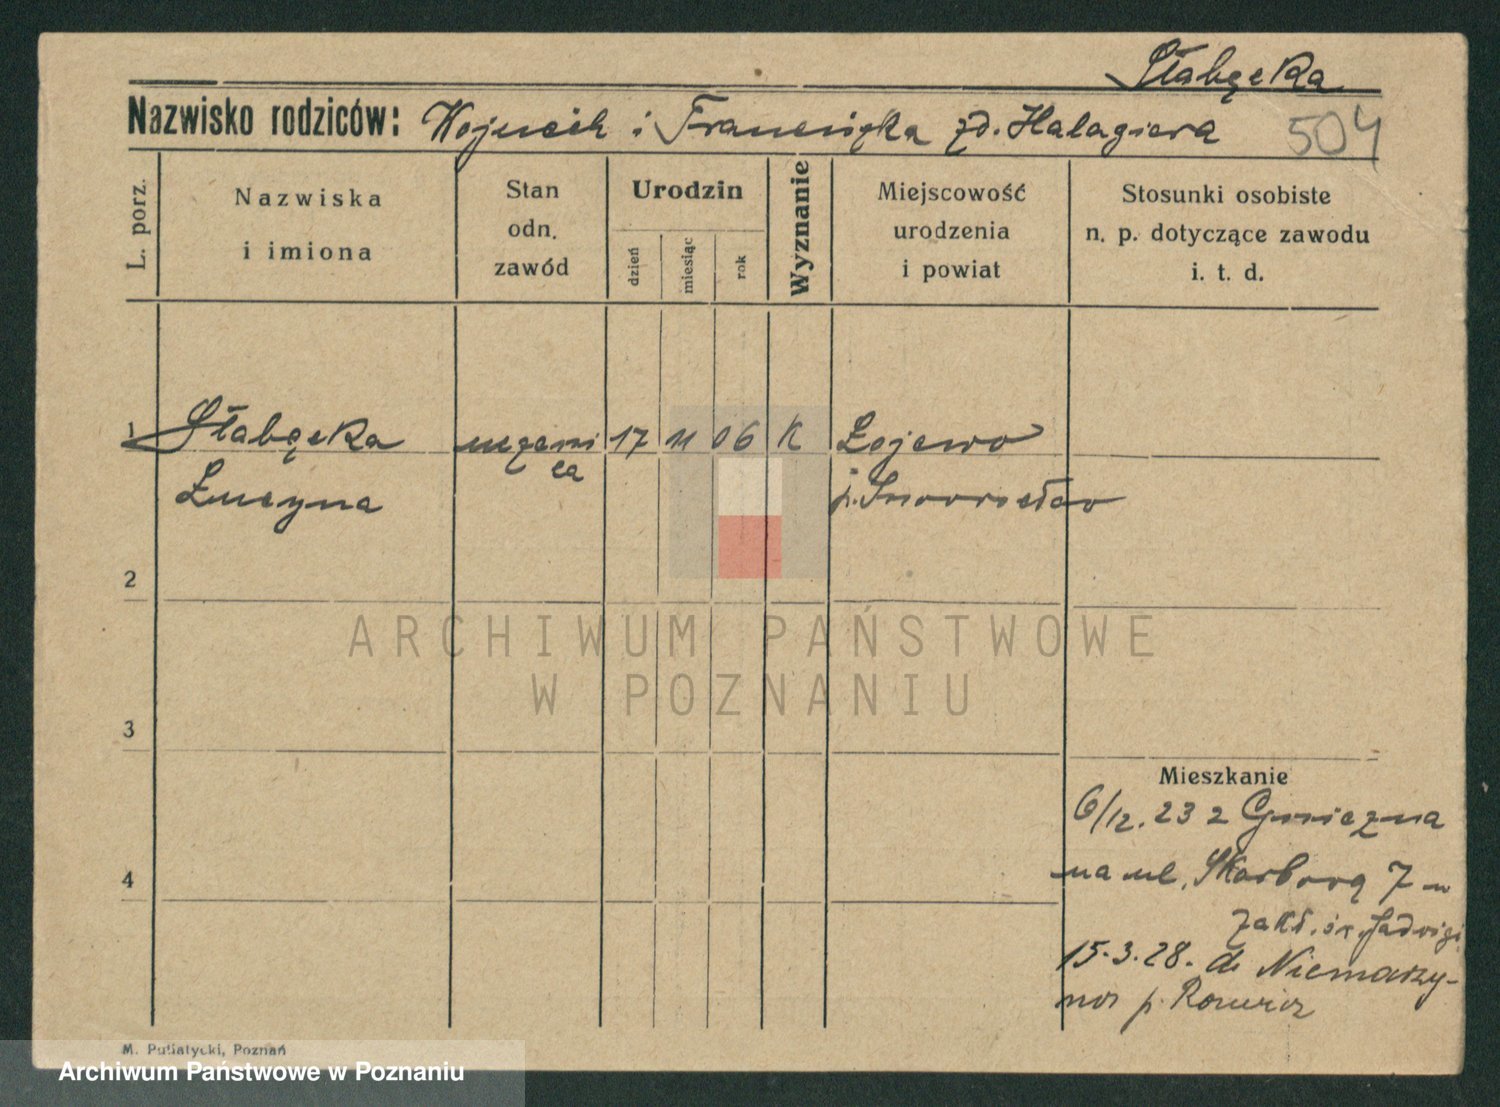 Słabęcka
Nazwisko rodziców: Wojciech i Franciszka zd. Halagiera
504
L. porz.
Nazwiska
i imiona
Stan
odn.
zawód
Urodzin
dzień
miesiąc
rok
Wyznanie
Miejscowość
urodzenia
i powiat
Stosunki osobiste
n. p. dotyczące zawodu
i. t. d.
1 Słabęcka uczenni 17 11 06 K Łojewo
ca
Łucyna p. Inowrocław
2
3
4
Mieszkanie
6/12. 23 z Gniezna
na ul. Skarbową 7 w
zakł. św. Jadwigi
15.3.28. do Niemarzy-
p.
M. Putiatycki, Poznań
ARCHIWUM PAŃSTWOWE
W POZNANIU
Archiwum Państwowe w Poznaniu